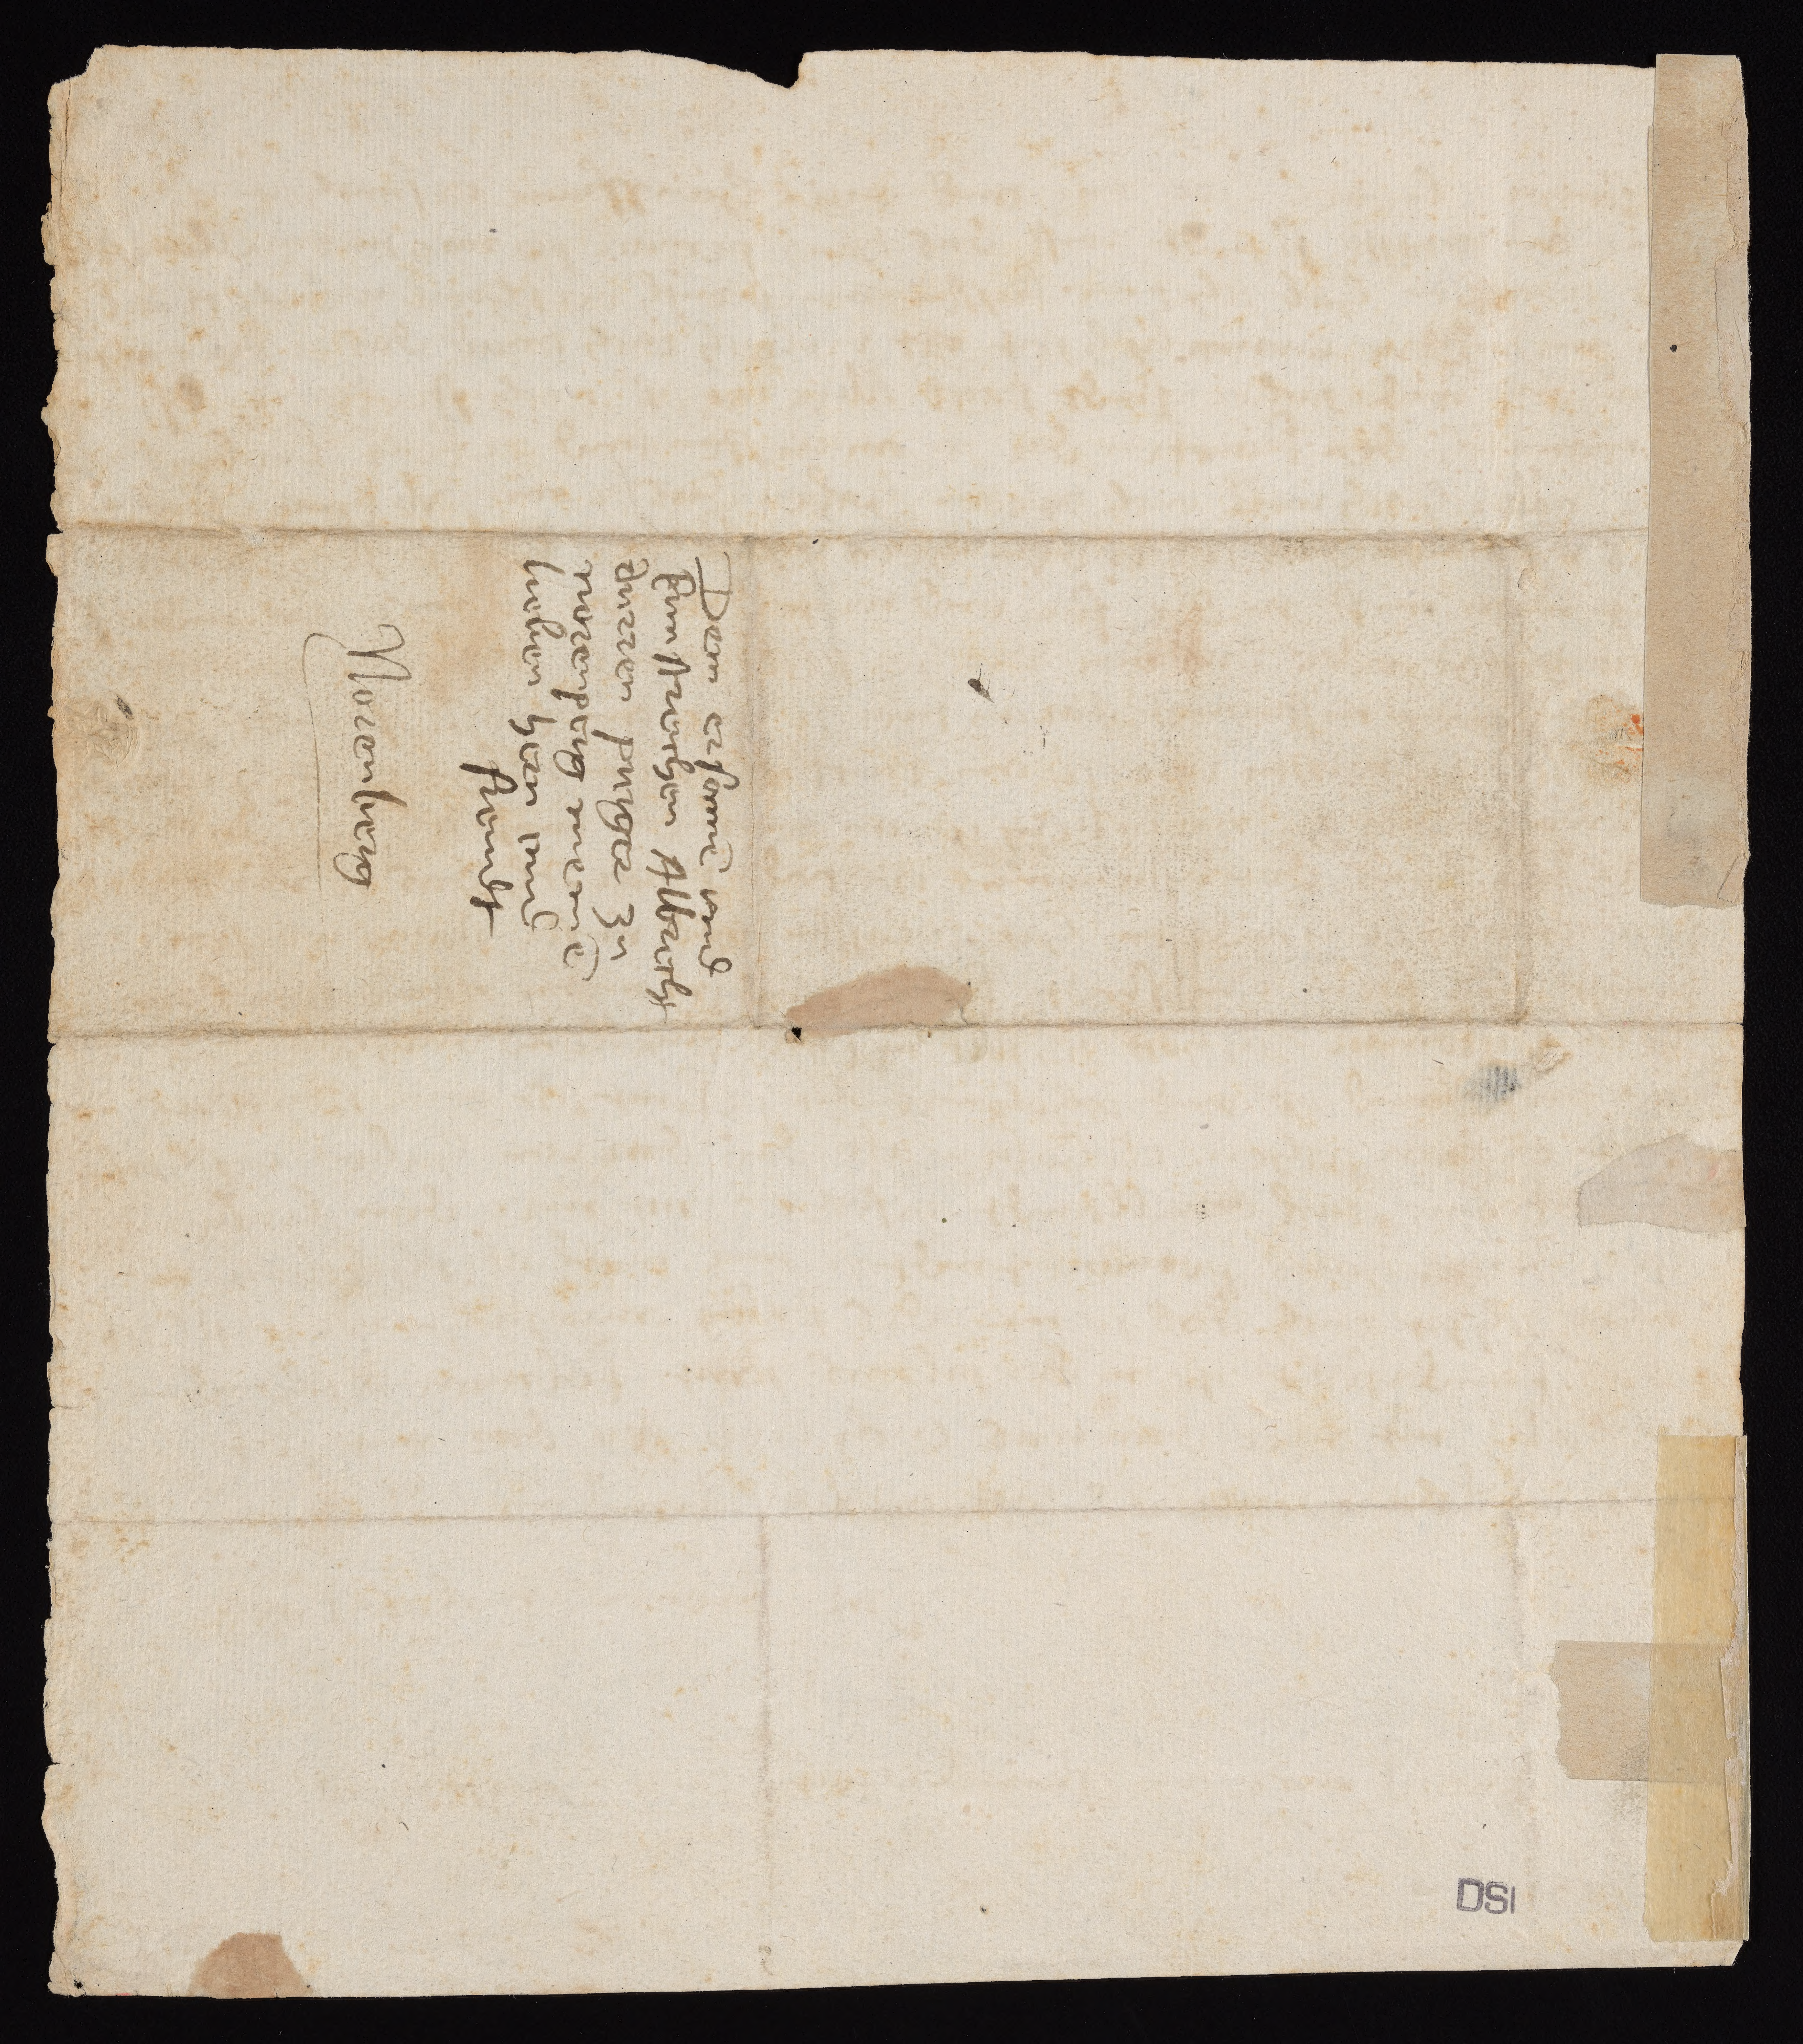 Dem ersame͞ vnd
kunstreichen Albrecht
durrer purger zu
nurenperg meine͞
lieben hern vnd
freundt
Norenberg
DSI